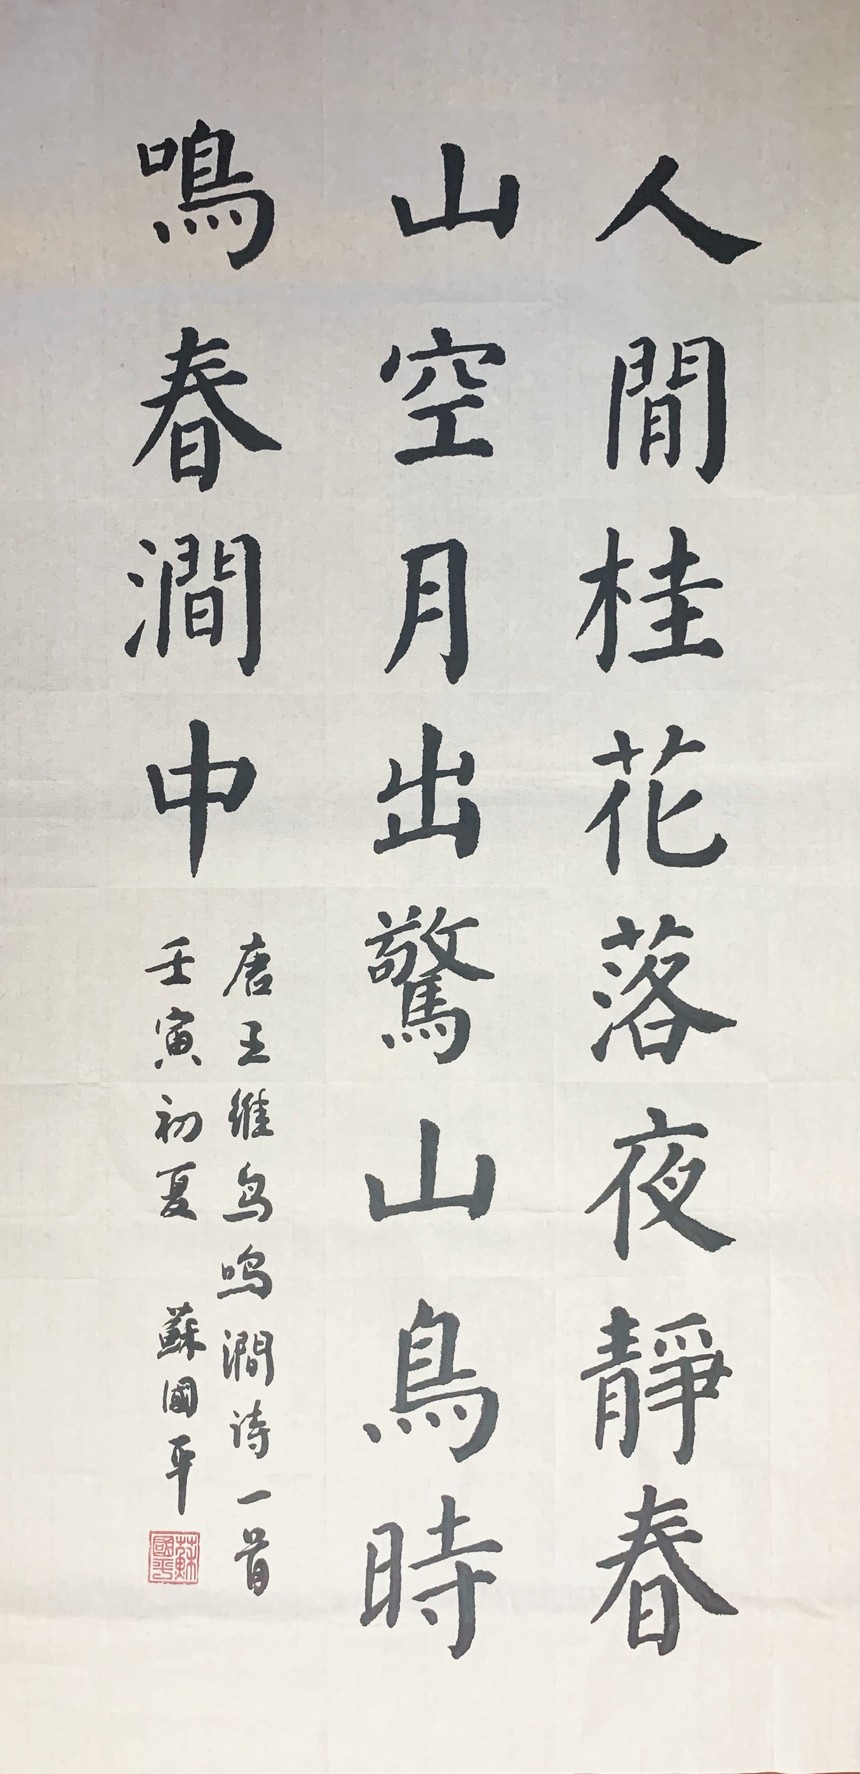 人閒桂花落夜靜春
山空月出驚山鳥時
鳴春澗中
唐王維鸟鸣澗诗一首
壬寅初夏 蘇國平
蘇國平